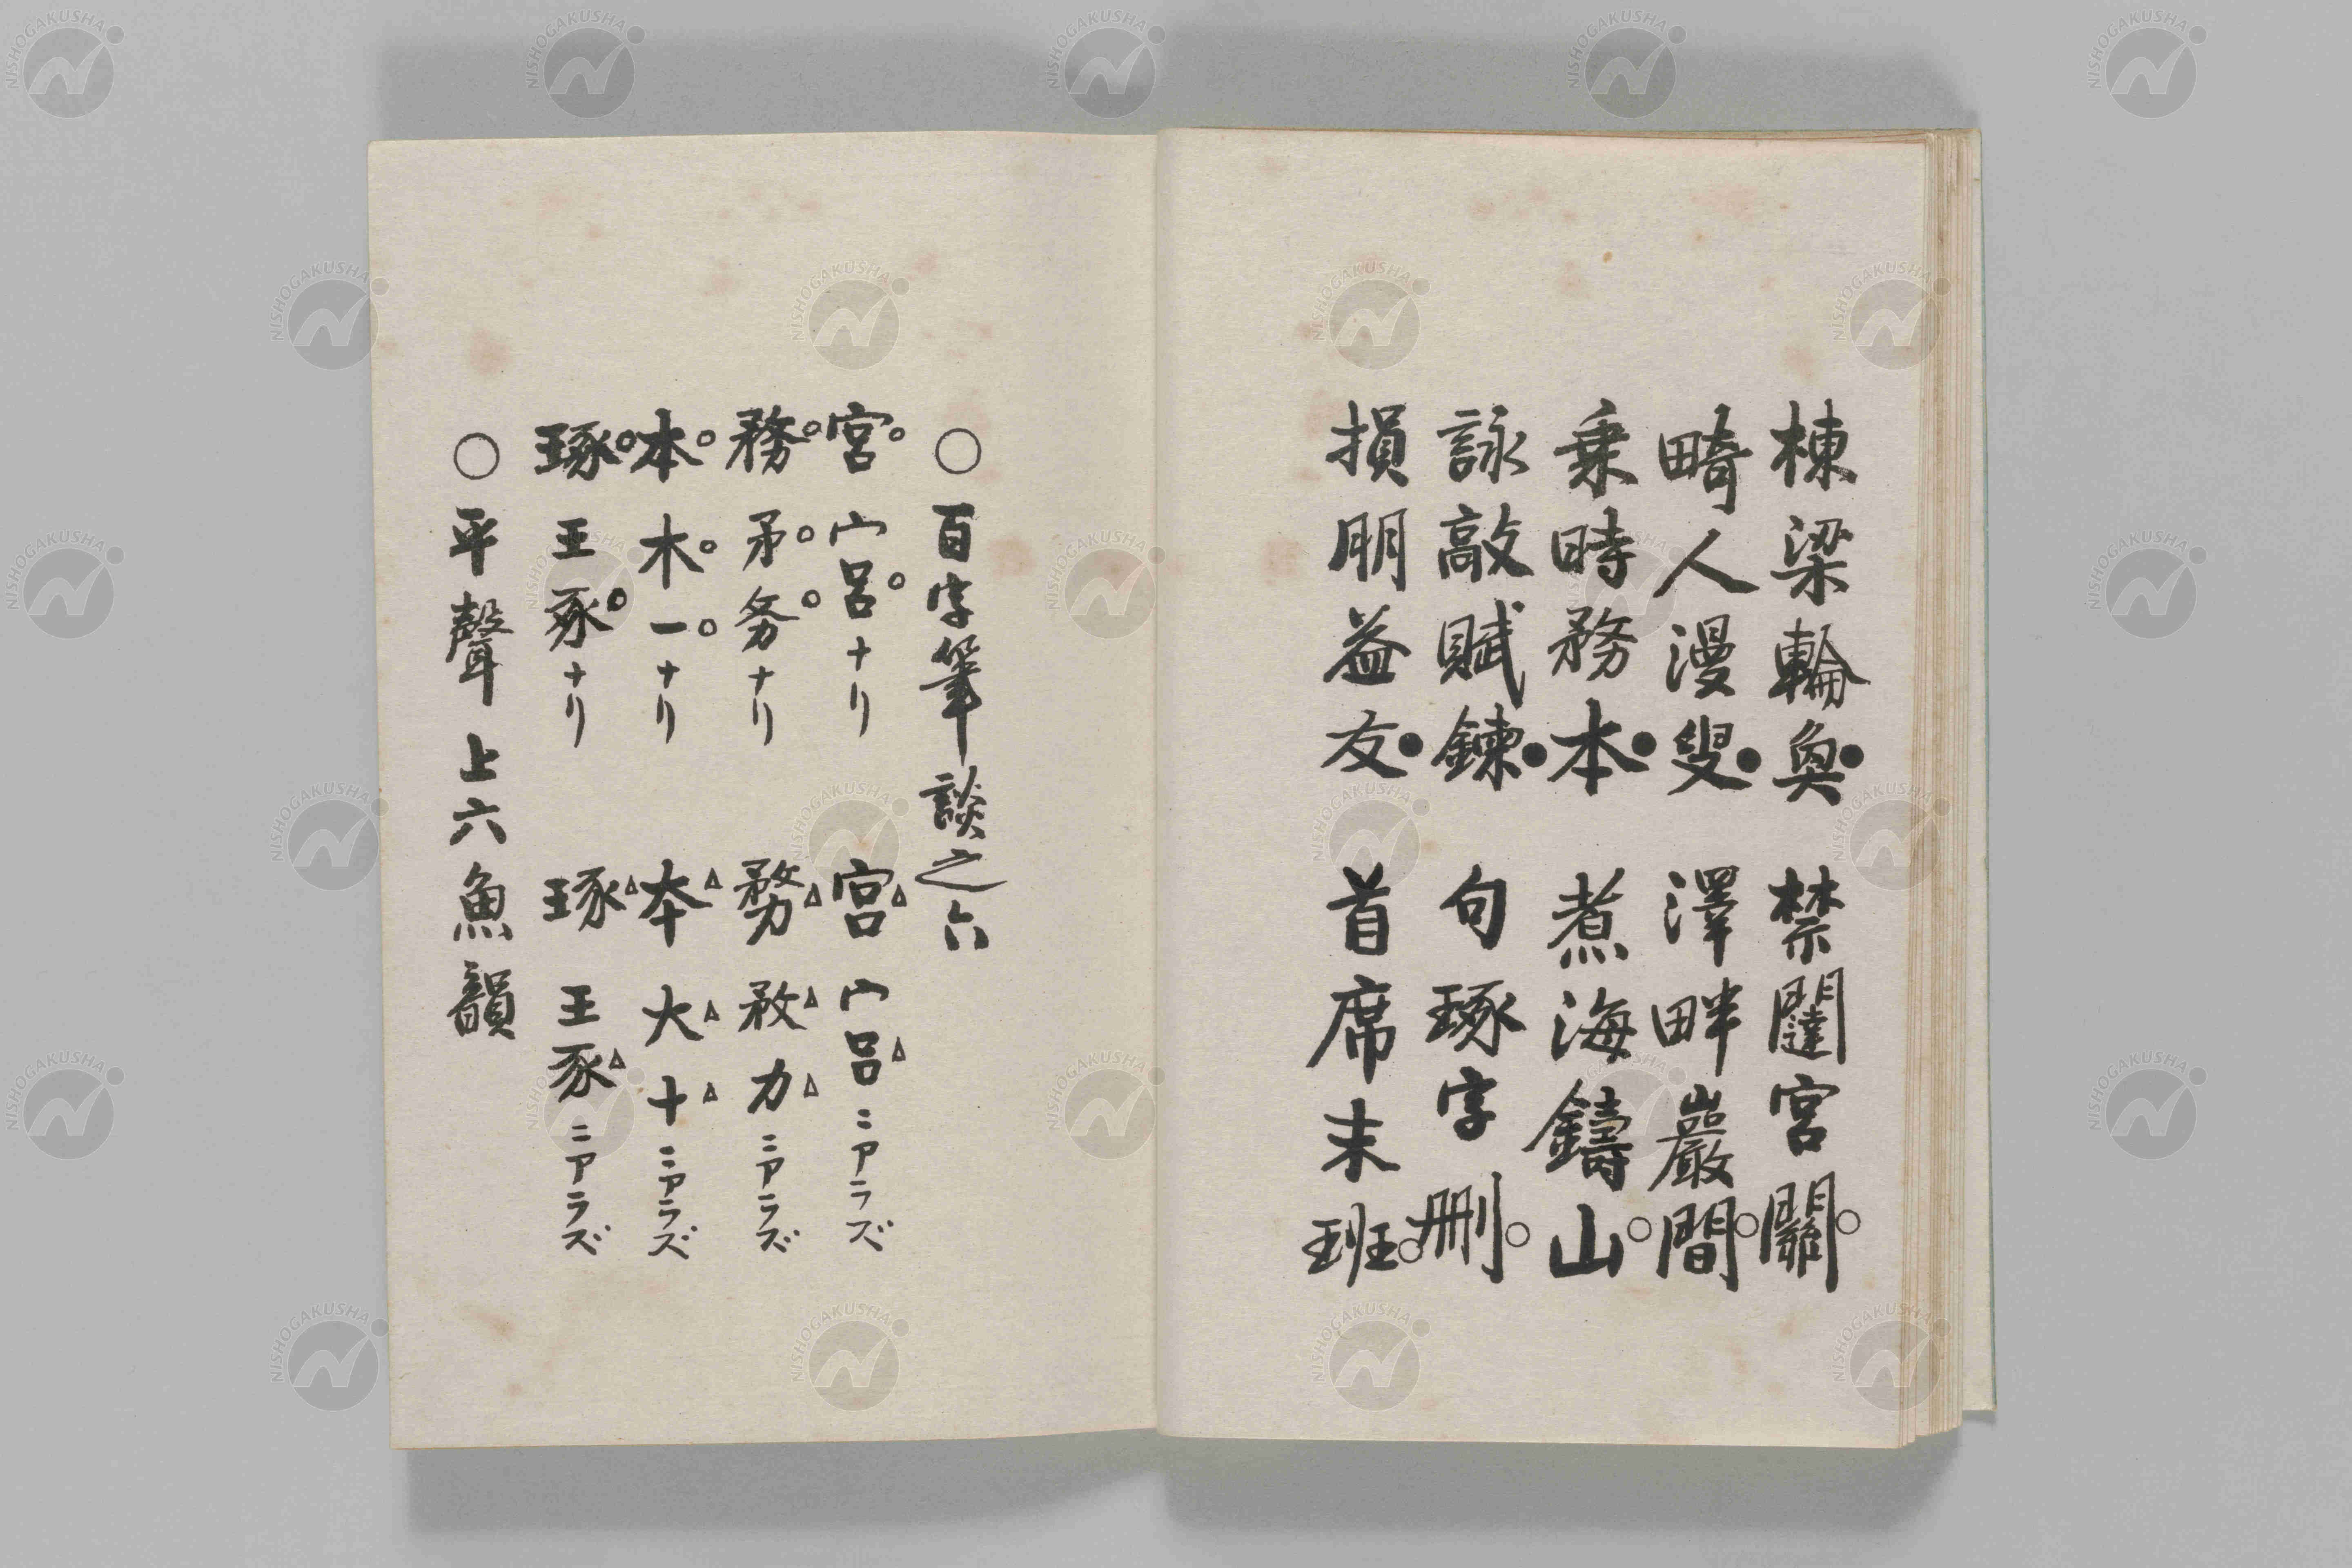 棟梁輪奐● 禁闥宮關○
畸人漫叟● 澤畔巖間○
乗時務本● 煮海鑄山○
詠敲賦鍊● 句琢字刪○
損朋益友● 首席末班○
○百字筆談之六
宮○ 宀呂○ナリ 宫△ 宀吕△ニアラズ
務○ 矛○务○ナリ 務△ 敄△力△ニアラズ
本○ 木○一○ナリ 夲△ 大△十△ニアラズ
琢○ 王豖○ナリ 琢△ 王豕△ニアラズ
○平聲上六魚韻
NISHOGAKUSHA